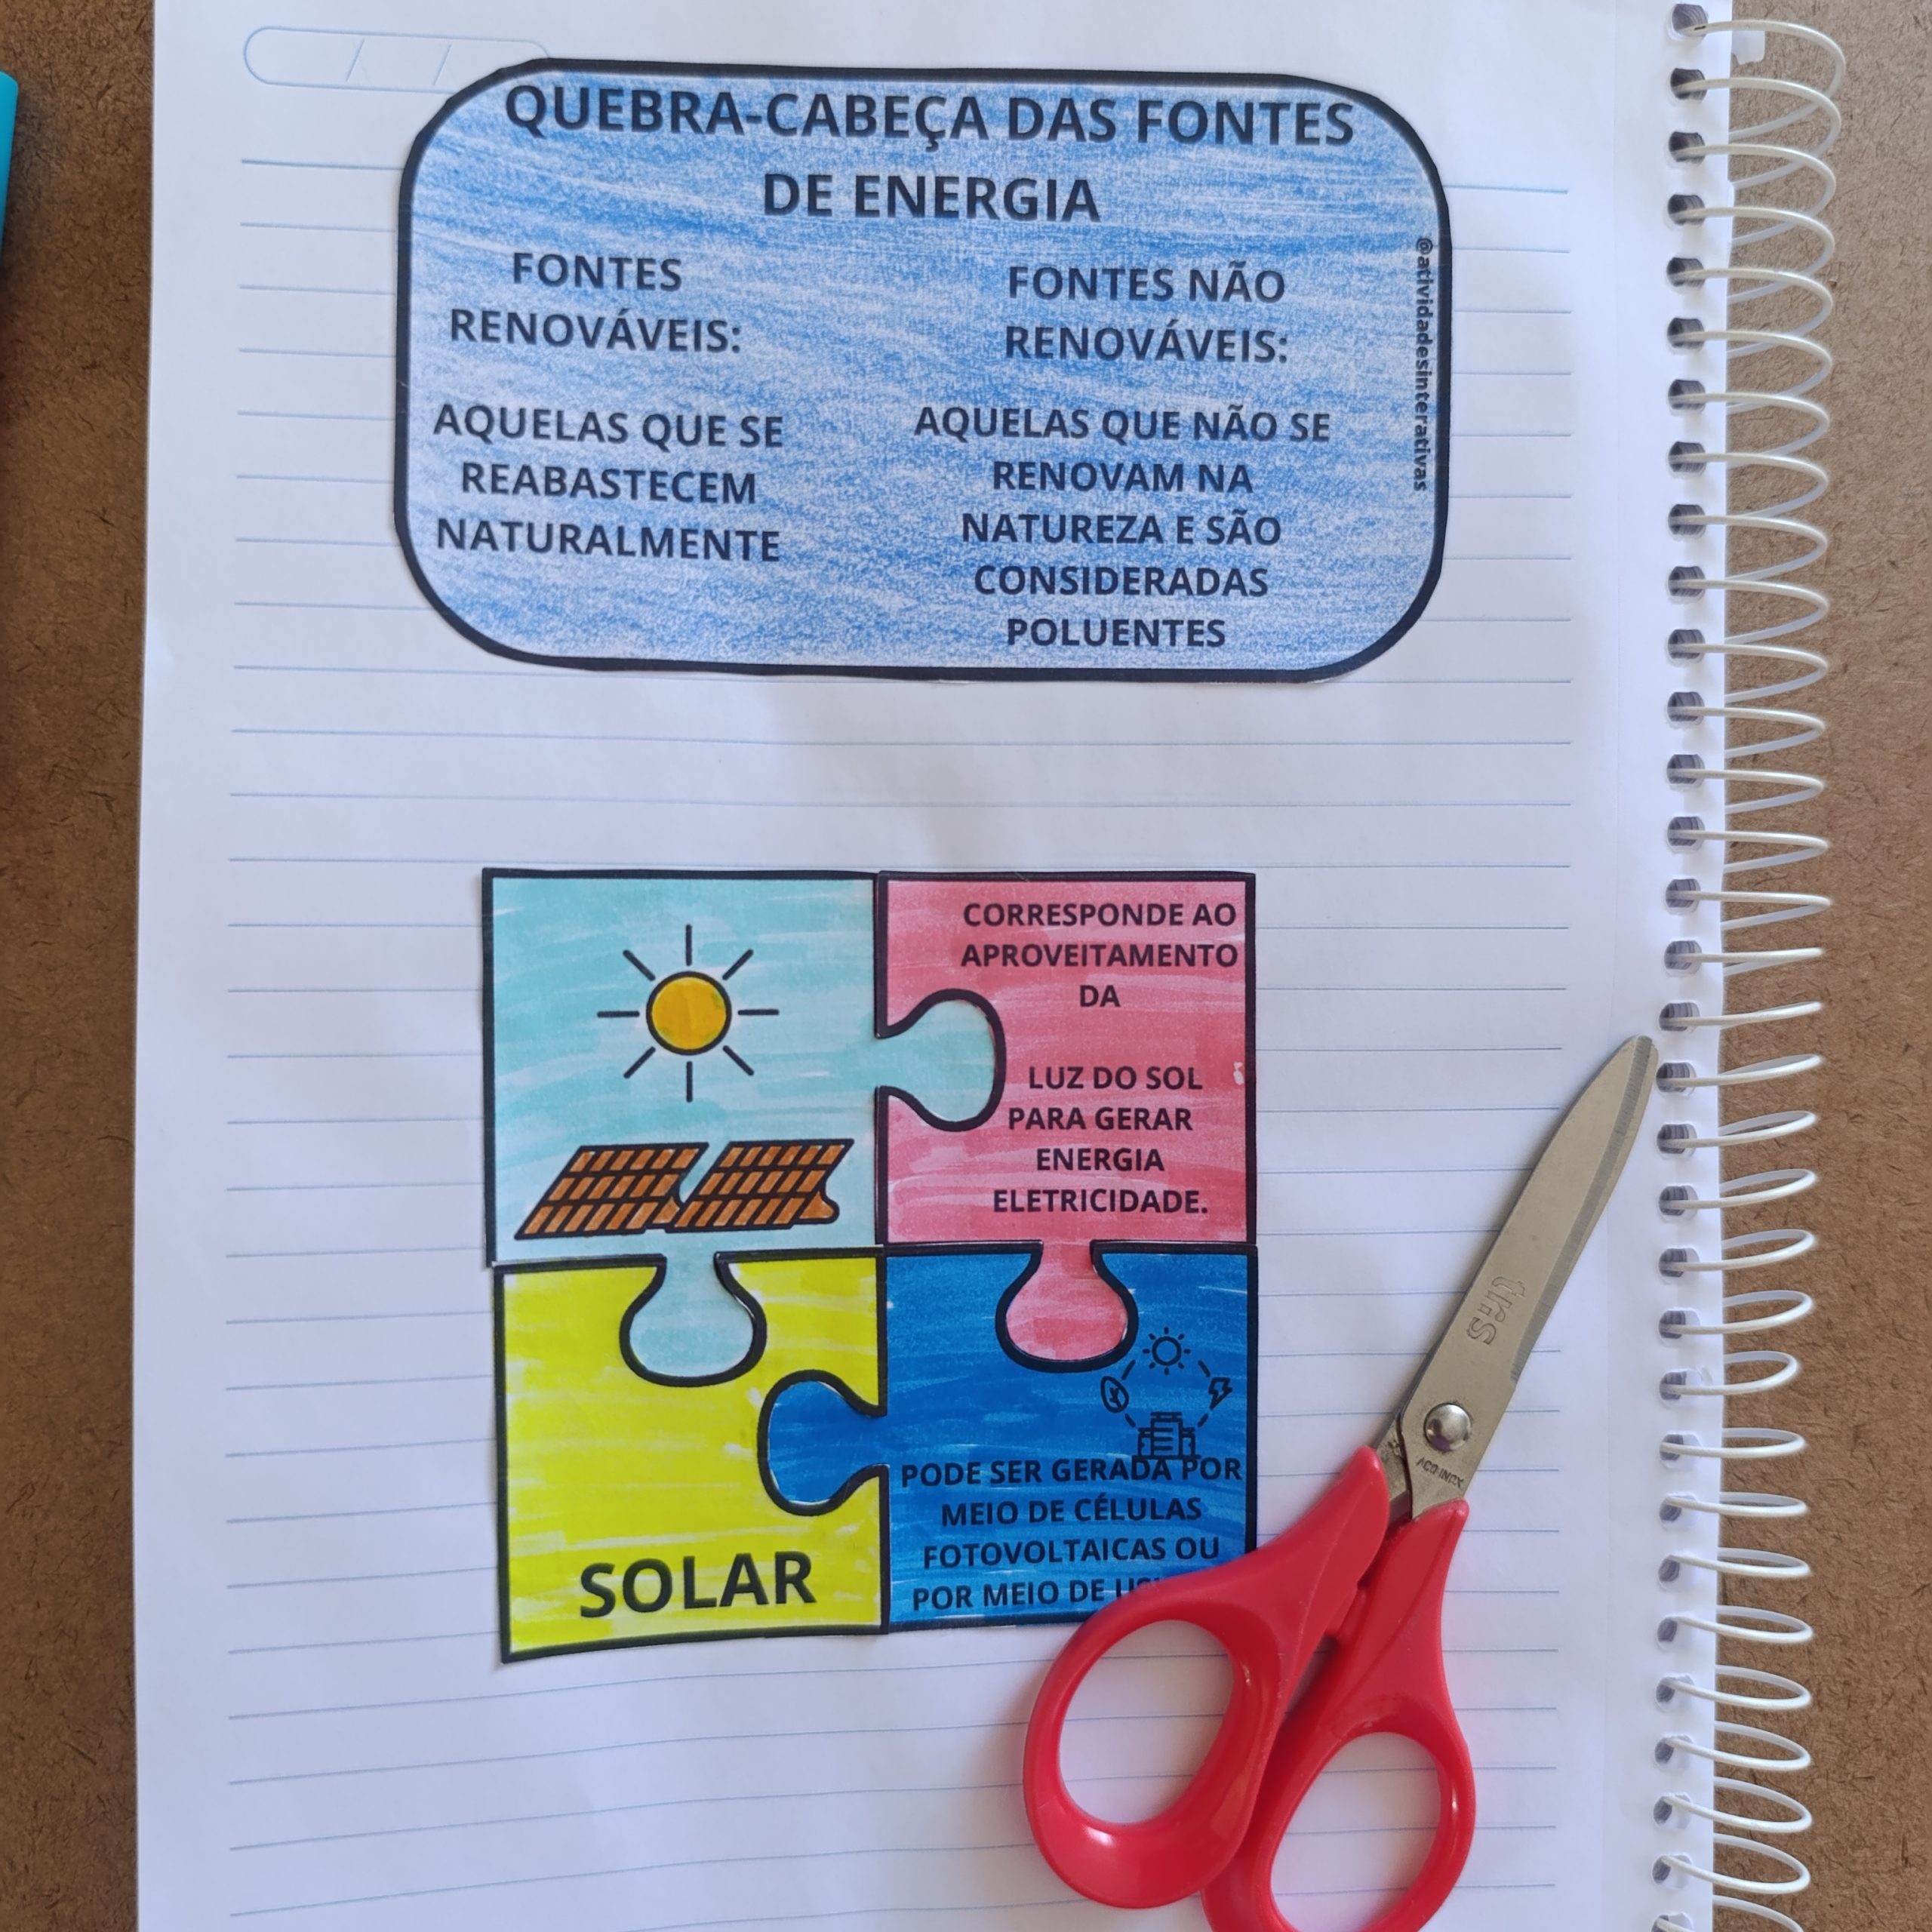 QUEBRA-CABEÇA DAS FONTES
DE ENERGIA
FONTES
RENOVÁVEIS:
AQUELAS QUE SE
REABASTECEM
NATURALMENTE
FONTES NÃO
RENOVÁVEIS:
AQUELAS QUE NÃO SE
RENOVAM NA
NATUREZA E SÃO
CONSIDERADAS
POLUENTES
@atividadesinterativas
CORRESPONDE AO
APROVEITAMENTO
DA
LUZ DO SOL
PARA GERAR
ENERGIA
ELETRICIDADE.
SOLAR
PODE SER GERADA POR
MEIO DE CÉLULAS
FOTOVOLTAICAS OU
POR MEIO DE
tris
AÇO INOX